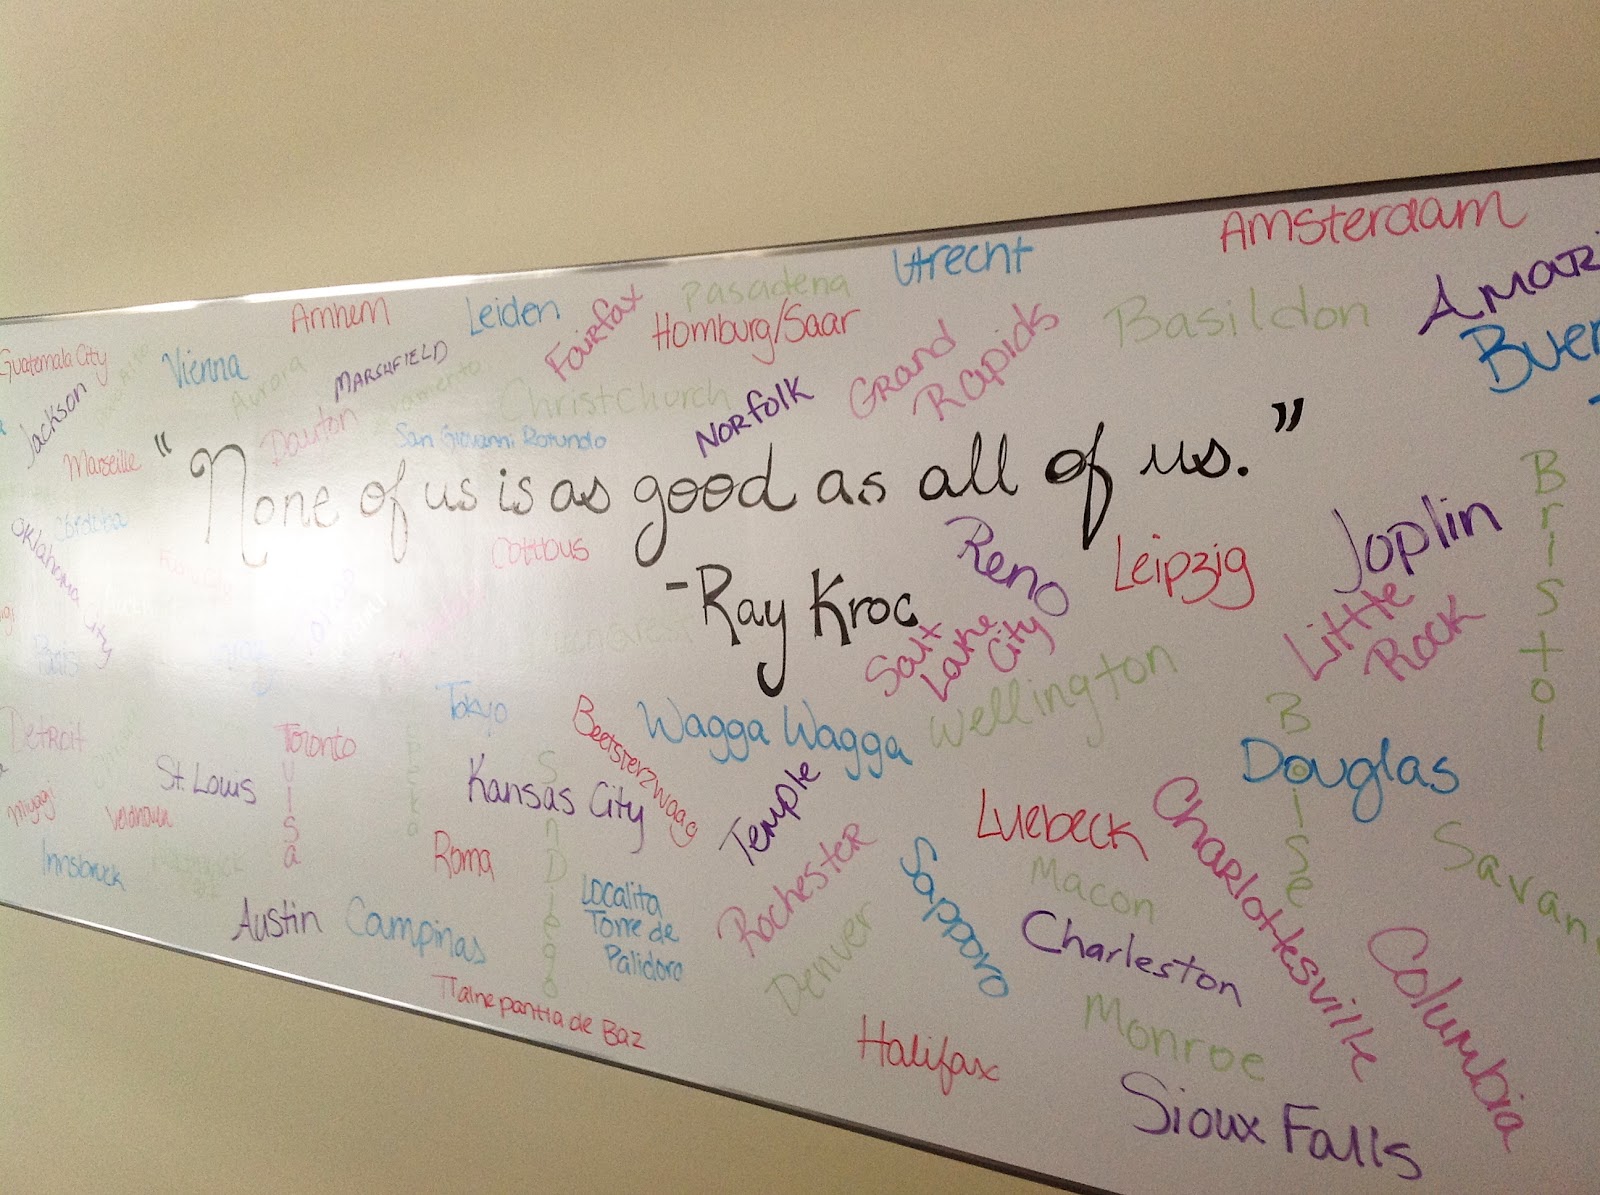 Amsterdam
Utrecht
Pasadena
Arnhem
Leiden
Fairfax
Homburg/Saar
Basildon
Guatemala City
Vienna
MARSHFIELD
Aurora
Grand
Rapids
Jackson
Christchurch
Norfolk
Dayton
San Giovanni Rotundo
Marseille
"None of us is as good as all of us."
-Ray Kroc
Bristol
Oklahoma City
Córdoba
Cottbus
Reno
Leipzig
Joplin
Little
Rock
Salt
Lake
City
Paris
Wellington
Tokyo
Detroit
Toronto
Beetsterzwaag
Wagga Wagga
Boise
Douglas
St. Louis
Tulsa
Kansas City
San Diego
Temple
Luebeck
Charlottesville
Miyagi
Innsbruck
Roma
Rochester
Sapporo
Macon
Austin
Campinas
Localita
Torre de
Palidoro
Denver
Charleston
Columbia
Tlalnepantla de Baz
Halifax
Monroe
Sioux Falls